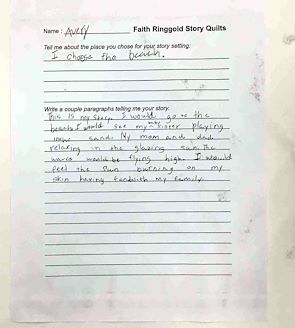 Name: Avery Faith Ringgold Story Quilts
Tell me about the place you chose for your story setting:
I choose the beach.
Write a couple paragraphs telling me your story.
This is my story I would go to the
beach I would see my baby sister playing
in the sand. My mom and dad
relaxing in the glazing sun. The
waves would be flying high. I would
feel the sun burning on my
skin having fun with my family.